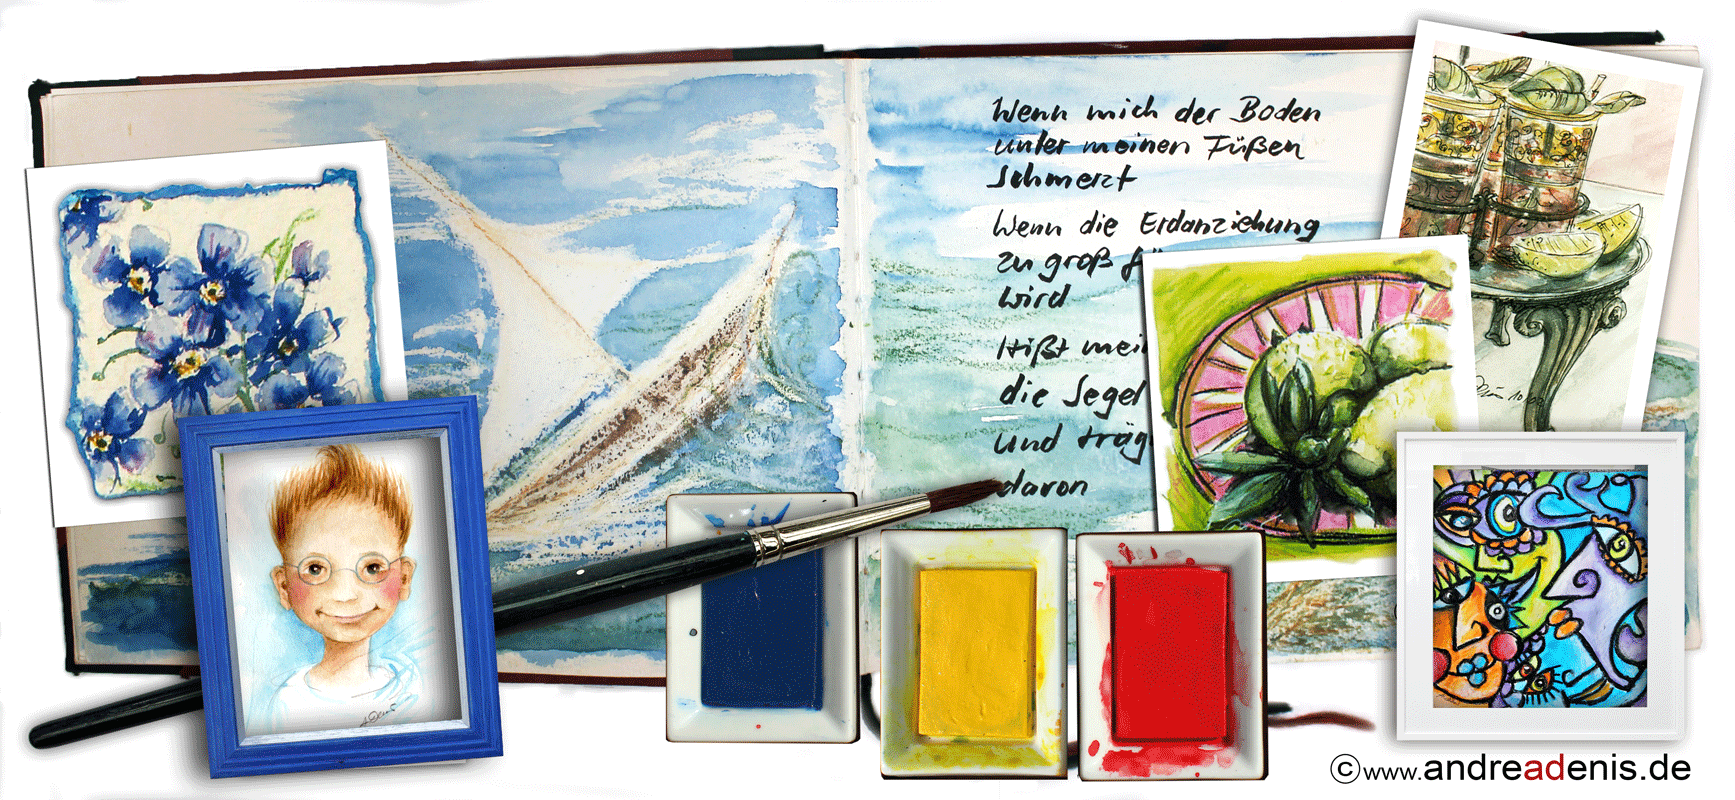 Wenn mich der Boden
unter meinen Füßen
schmerzt
Wenn die Erdanziehung
zu groß
wird
Hißt
die Segel
und
davon
©www.andreadenis.de